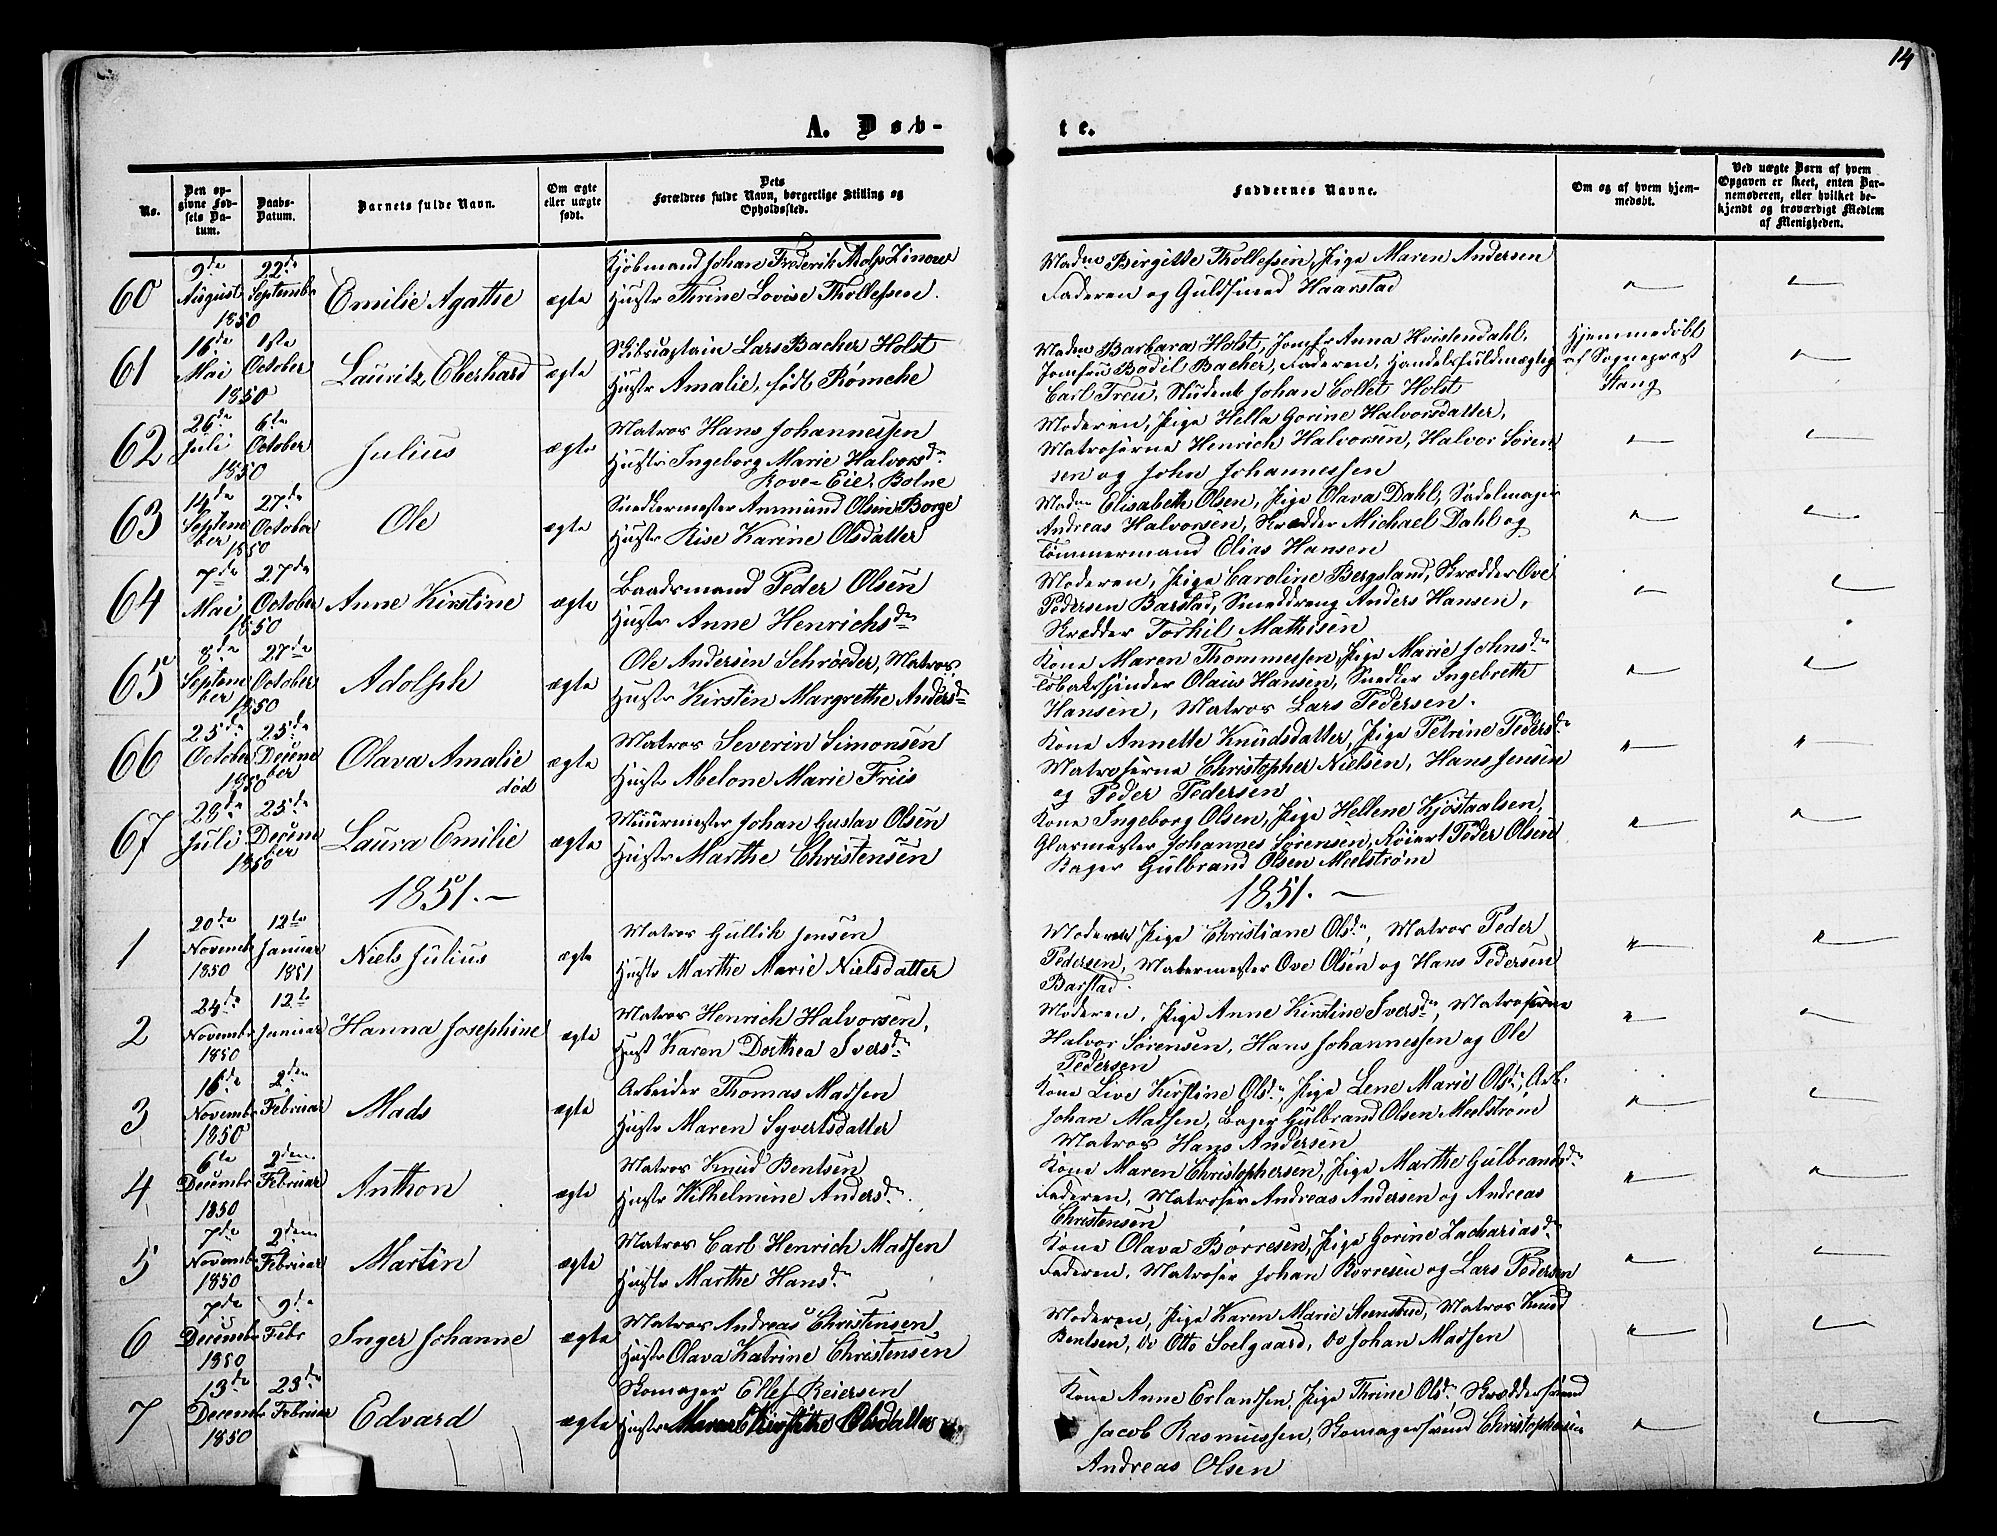 14
A. Døb-
te.
No.
Den op-
givne Fød-
sels Da-
tum.
Daabs-
Datum.
Barnets fulde Navn.
Om ægte
eller uægte
født.
Dets
Forældres fulde Navn, borgerlige Stilling og
Opholdssted.
Faddernes Navne.
Om og af hvem hjem-
medøbt.
Ved uægte Børn af hvem
Opgaven er skeet, enten Bar-
nemoderen, eller hvilket be-
kjendt og troværdigt Medlem
af Menigheden.
60 9de August 1850 22de Septembr Emilie Agathe ægte
Kjøbmand Johan Frederik Adolph
Hustr Thrine Lovise Thollefsen.
Madm Birgitte Thollefsen, Pige Maren Andersen
Faderen og Guldsmed Haarstad
61 16de Mai 1850 1ste October Lauritz Eberhard ægte
Skibscaptain Lars Bacher Holst
Hustr Amalie, født Rømche
Madm Barbara Holst, Jomfr Anna Hvistendahl,
Jomfru Bodil Bacher, Faderen, Handelsfuldmægtig
Carl Treu, Student Johan Collet Holst
Hjemmedøbt
af Sognepræst
Stang
62 26de Juli 1850 6te October Julius ægte
Matros Hans Johannessen
Hustr Ingeborg Marie Halvorsdr
Rove-Eie, Botne
Moderen, Pige Hella Gorine Halvorsdatter,
Matroserne Henrich Halvorsen, Halvor Søren-
sen og John Johannessen
63 14de Septem-
ber 1850 27de October Ole ægte
Snedkermester Anmund Olsen Borge
Hustr Rise Karine Olsdatter
Madm Elisabeth Olsen, Pige Olava Dahl, Sadelmager
Andreas Halvorsen, Skrædder Michael Dahl og
Tømmermand Elias Hansen
64 7de Mai 1850 27de October Anne Kirstine ægte
Baadsmand Peder Olsen
Hustr Anne Henrichsdr
Moderen, Pige Caroline Bergsland, Skrædder Ove
Pedersen Barstad, Smeddreng Anders Hansen,
Skrædder Torkil Mathisen
65 8de Septem-
ber 1850 27de October Adolph ægte
Ole Andersen Schrøeder, Matros,
Hustr Kirstin Margrethe Andersdr
Kone Maren Thommessen, Pige Marie Johnsdr
Tobaksspinder Olaus Hansen, Snedker Ingebreth
Hansen, Matros Lars Pedersen.
66 25de October 1850 25de Decem-
ber Olava Amalie ægte
død
Matros Severin Simonsen
Hustr Abelone Marie Friis
Kone Annette Knudsdatter, Pige Petrine Pedersdr
Matroserne Christopher Nielsen, Hans Jensen
og Peder Pedersen
67 28de Juli 1850 25de Decem-
ber Laura Emilie ægte
Muurmester Johan Gustav Olsen
Hustr Marthe Christensen
Kone Ingeborg Olsen, Pige Hellene Kjøstaalsen,
Glarmester Johannes Sørensen, Røiert Peder Olsen
Bager Gulbrand Olsen Meelstrøm
1851.-
1851.-
1 20de Novembr 1850 12te Januar 1851 Niels Julius ægte
Matros Gullik Jensen
Hustr Marthe Marie Nielsdatter
Moderen Pige Christiane Olsdr, Matros Peder
Pedersen, Malermester Ove Olsen og Hans Pedersen
Barstad.
2 24de Novembr 1850 12te Januar Hanna Josephine ægte
Matros Henrich Halvorsen,
Hust Karen Dorthea Iversdr
Moderen, Pige Anne Kirstine Iversdr, Matroserne
Halvor Sørensen, Hans Johannessen og Ole
Pedersen
3 16de Novembr 1850 2den Februar Mads ægte
Arbeider Thomas Madsen
Hustr Maren Syvertsdatter
Kone Live Kirstine Olsdr, Pige Lene Marie Olsdr, Arb.
Johan Madsen, Bager Gulbrand Olsen Meelstrøm
Matros Hans Andersen
4 6te Decembr 1850 2den Februar Anthon ægte
Matros Knud Bentsen
Hustr Wilhelmine Andersdr.
Kone Maren Christophersen, Pige Marthe Gulbrandsdr
Faderen, Matroser Andreas Andersen og Andreas
Christensen
5 7de Novembr 1850 2den Februar Martin ægte
Matros Carl Henrich Madsen
Hustr Marthe Hansdr
Kone Olava Børresen, Pige Gorine Zachariasdr
Faderen, Matroser Johan Børresen og Lars Pedersen
6 7de Decembr 1850 9de Febr Inger Johanne ægte
Matros Andreas Christensen
Hustr Olava Katrine Christensen
Moderen, Pige Karen Marie Steensrud, Matros Knud
Bentsen, do Otto Solgaard, do Johan Madsen
7 13de Decembr 1850 23de Februar Edvard ægte
Skomager Ellef Reiersen
Hustr Maren Kirstine Olsdatter
Kone Anne Erlandsen, Pige Thrine Olsdr, Skræddersvend
Jacob Rasmussen, Skomagersvend Christophersen
Andreas Olsen